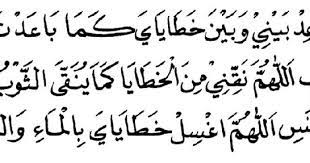 عِدْ بَيْنِيْ وَبَيْنَ خَطَايَايَ كَمَا بَاعَدْتَ
اَللّٰهُمَّ نَقِّنِيْ مِنَ الْخَطَايَا كَمَا يُنَقَّى الثَّوْبُ
نَسِ اَللّٰهُمَّ اغْسِلْ خَطَايَايَ بِالْمَاءِ وَال